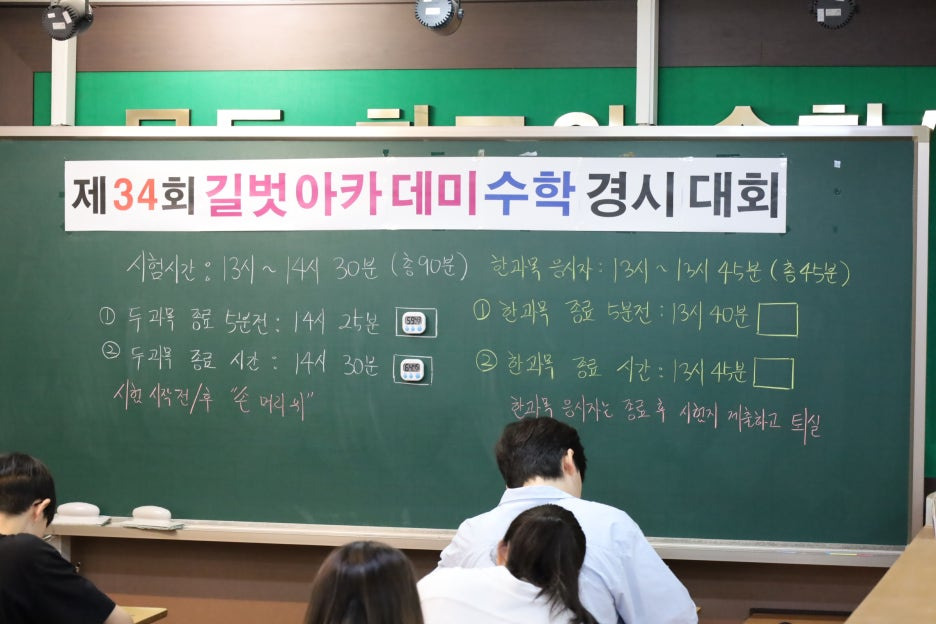 제34회 길벗아카데미 수학 경시대회
시험시간 : 13시 ~ 14시 30분 (총90분)
① 두과목 종료 5분전 : 14시 25분
② 두과목 종료 시간 : 14시 30분
시험 시작 전/후 "손 머리 위"
한과목 응시자 : 13시 ~ 13시 45분 (총 45분)
① 한과목 종료 5분전 : 13시 40분
② 한과목 종료 시간 : 13시 45분
한과목 응시자는 종료 후 시험지 제출하고 퇴실